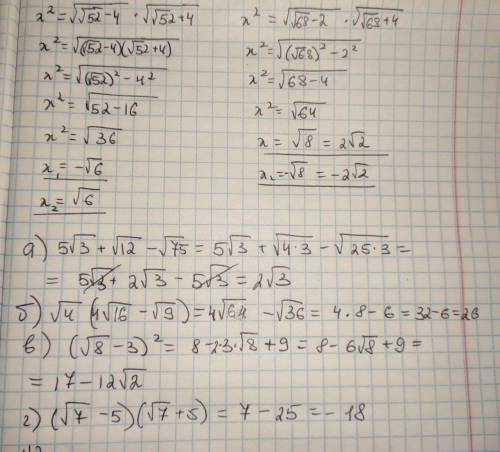 x² = √(√52 - 4) · √(√52 + 4)
x² = √((√52 - 4)(√52 + 4))
x² = √((√52)² - 4²)
x² = √(52 - 16)
x² = √36
x₁ = -√6
x₂ = √6
x² = √(√68 - 2) · √(√68 + 4)
x² = √((√68)² - 2²)
x² = √(68 - 4)
x² = √64
x = √8 = 2√2
x₁ = -√8 = -2√2
а) 5√3 + √12 - √75 = 5√3 + √(4·3) - √(25·3) =
= 5√3 + 2√3 - 5√3 = 2√3
б) √4 (4√16 - √9) = 4√64 - √36 = 4·8 - 6 = 32 - 6 = 26
в) (√8 - 3)² = 8 - 2·3·√8 + 9 = 8 - 6√8 + 9 =
= 17 - 12√2
г) (√7 - 5)(√7 + 5) = 7 - 25 = -18